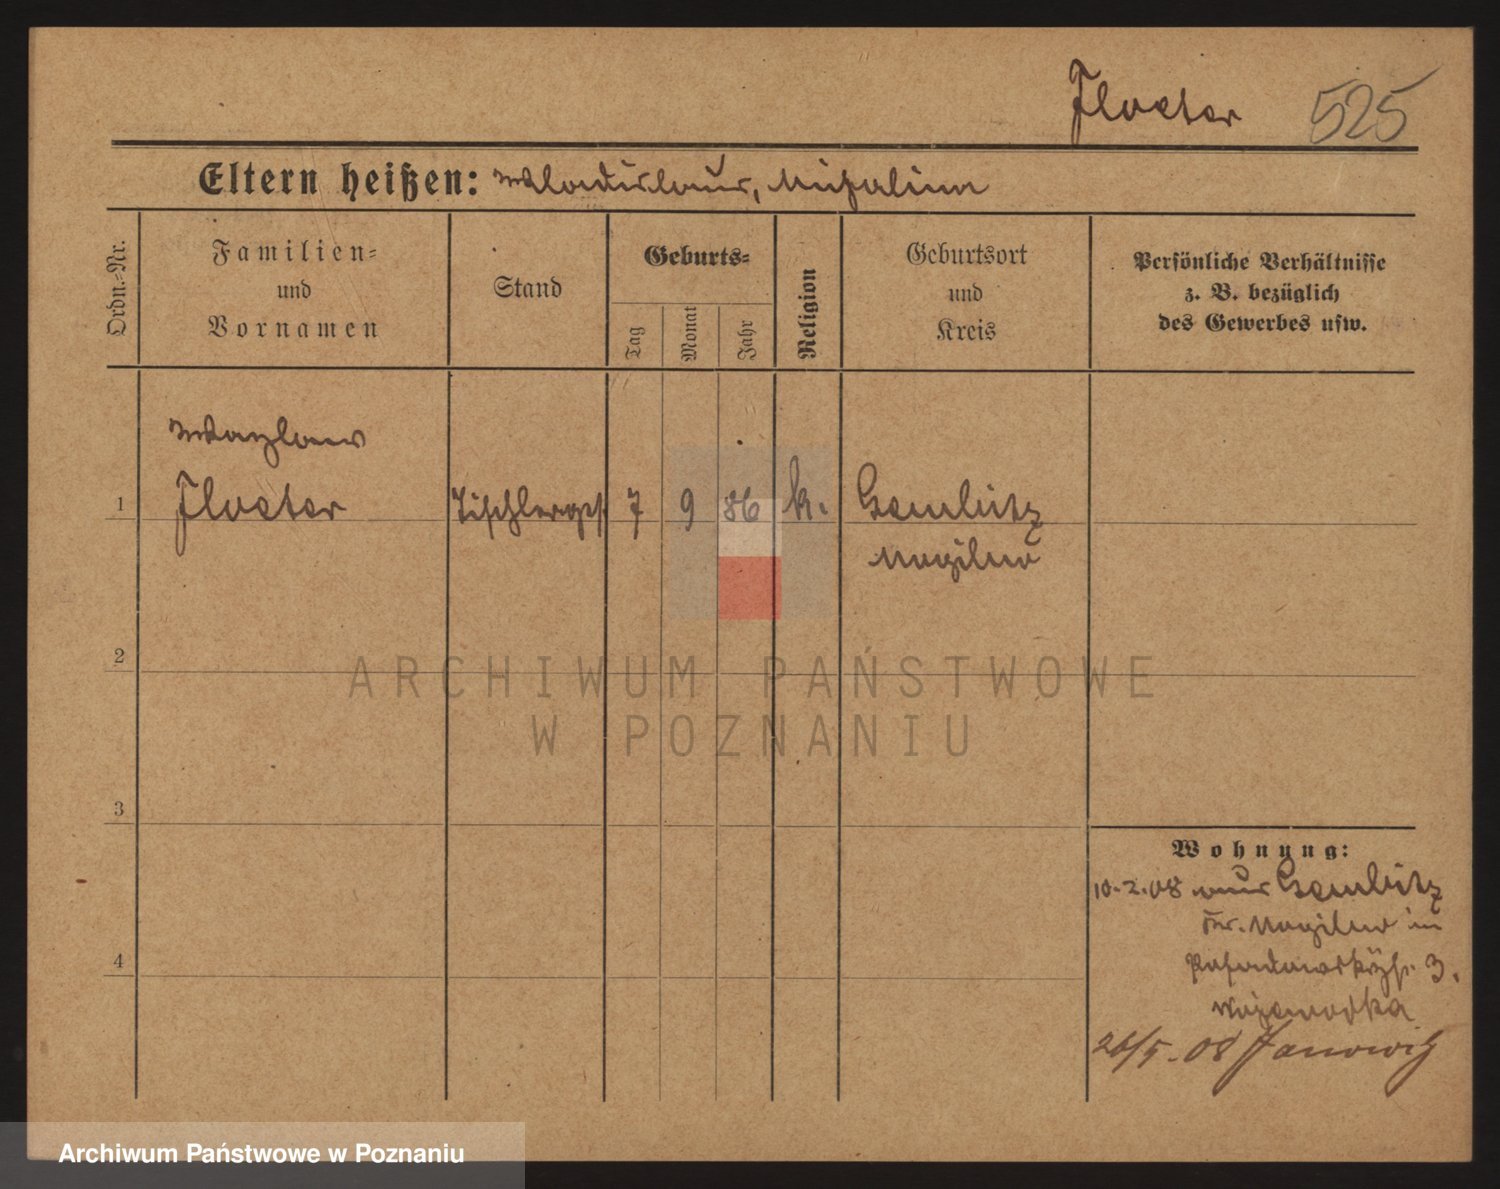 Floeter 525
Eltern heißen: Wladislaus, Michalina
Ordn.-Nr.
Familien-
und
Vornamen
Stand
Geburts-
Tag
Monat
Jahr
Religion
Geburtsort
und
Kreis
Persönliche Verhältnisse
z. B. bezüglich
des Gewerbes usw.
Wazlaw
1 Floeter Tischlerges 7 9 86 k. Gembitz
Mogilno
2
ARCHIWUM PAŃSTWOWE
W POZNANIU
3
Wohnung:
10.2.08 aus Gembitz
Kr. Mogilno in
4
3.
26/5.08 Janowitz
Archiwum Państwowe w Poznaniu